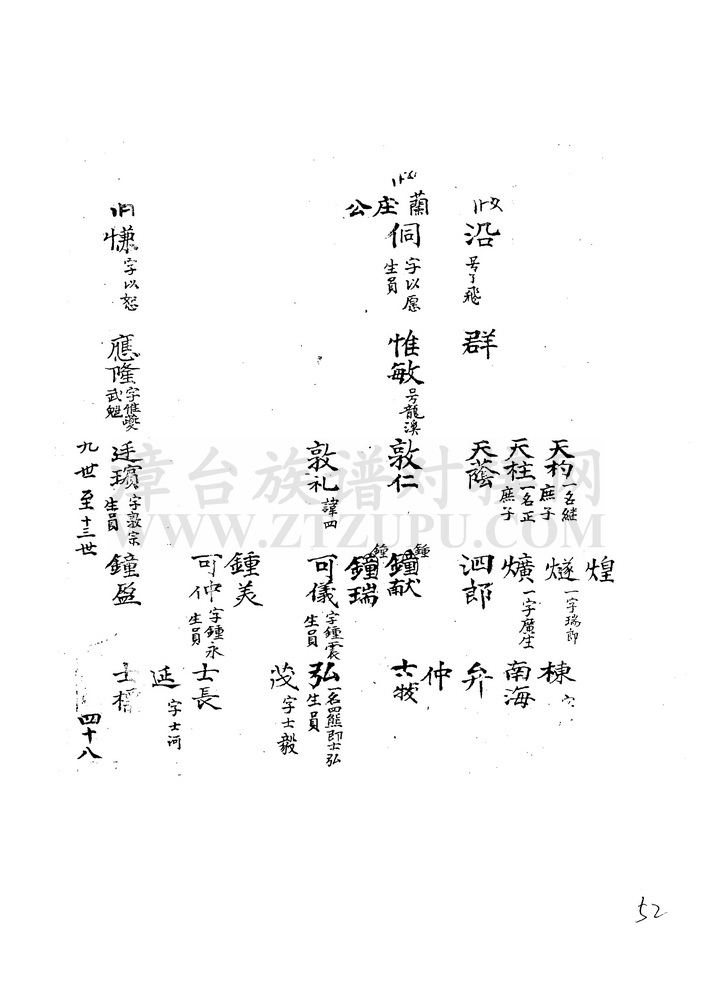 沿 号了飛
群
天杓 一名継 庶子
天柱 一名正 庶子
天蔭
煌
燧 一字瑞郎
爌 一字廣生
泗郎
棟
南海
弁
仲
蘭庄公
侗 字以愿 生員
惟敏 号龍溪
敦仁
敦礼 諱四
鐘献 鍾
鐘瑞 鍾
可儀 字鍾震 生員
弘 一名羆熊郎士弘 生員
茂 字士毅
鍾美
可仲 字鍾永 生員
士長
延 字士河
慊 字以恕
應隆 字惟夔 武魁
廷璸 字敦宗 生員
鐘盈
九世至十三世
四十八
章台族谱讨拐网
WWW.ZTZUPU.COM
52